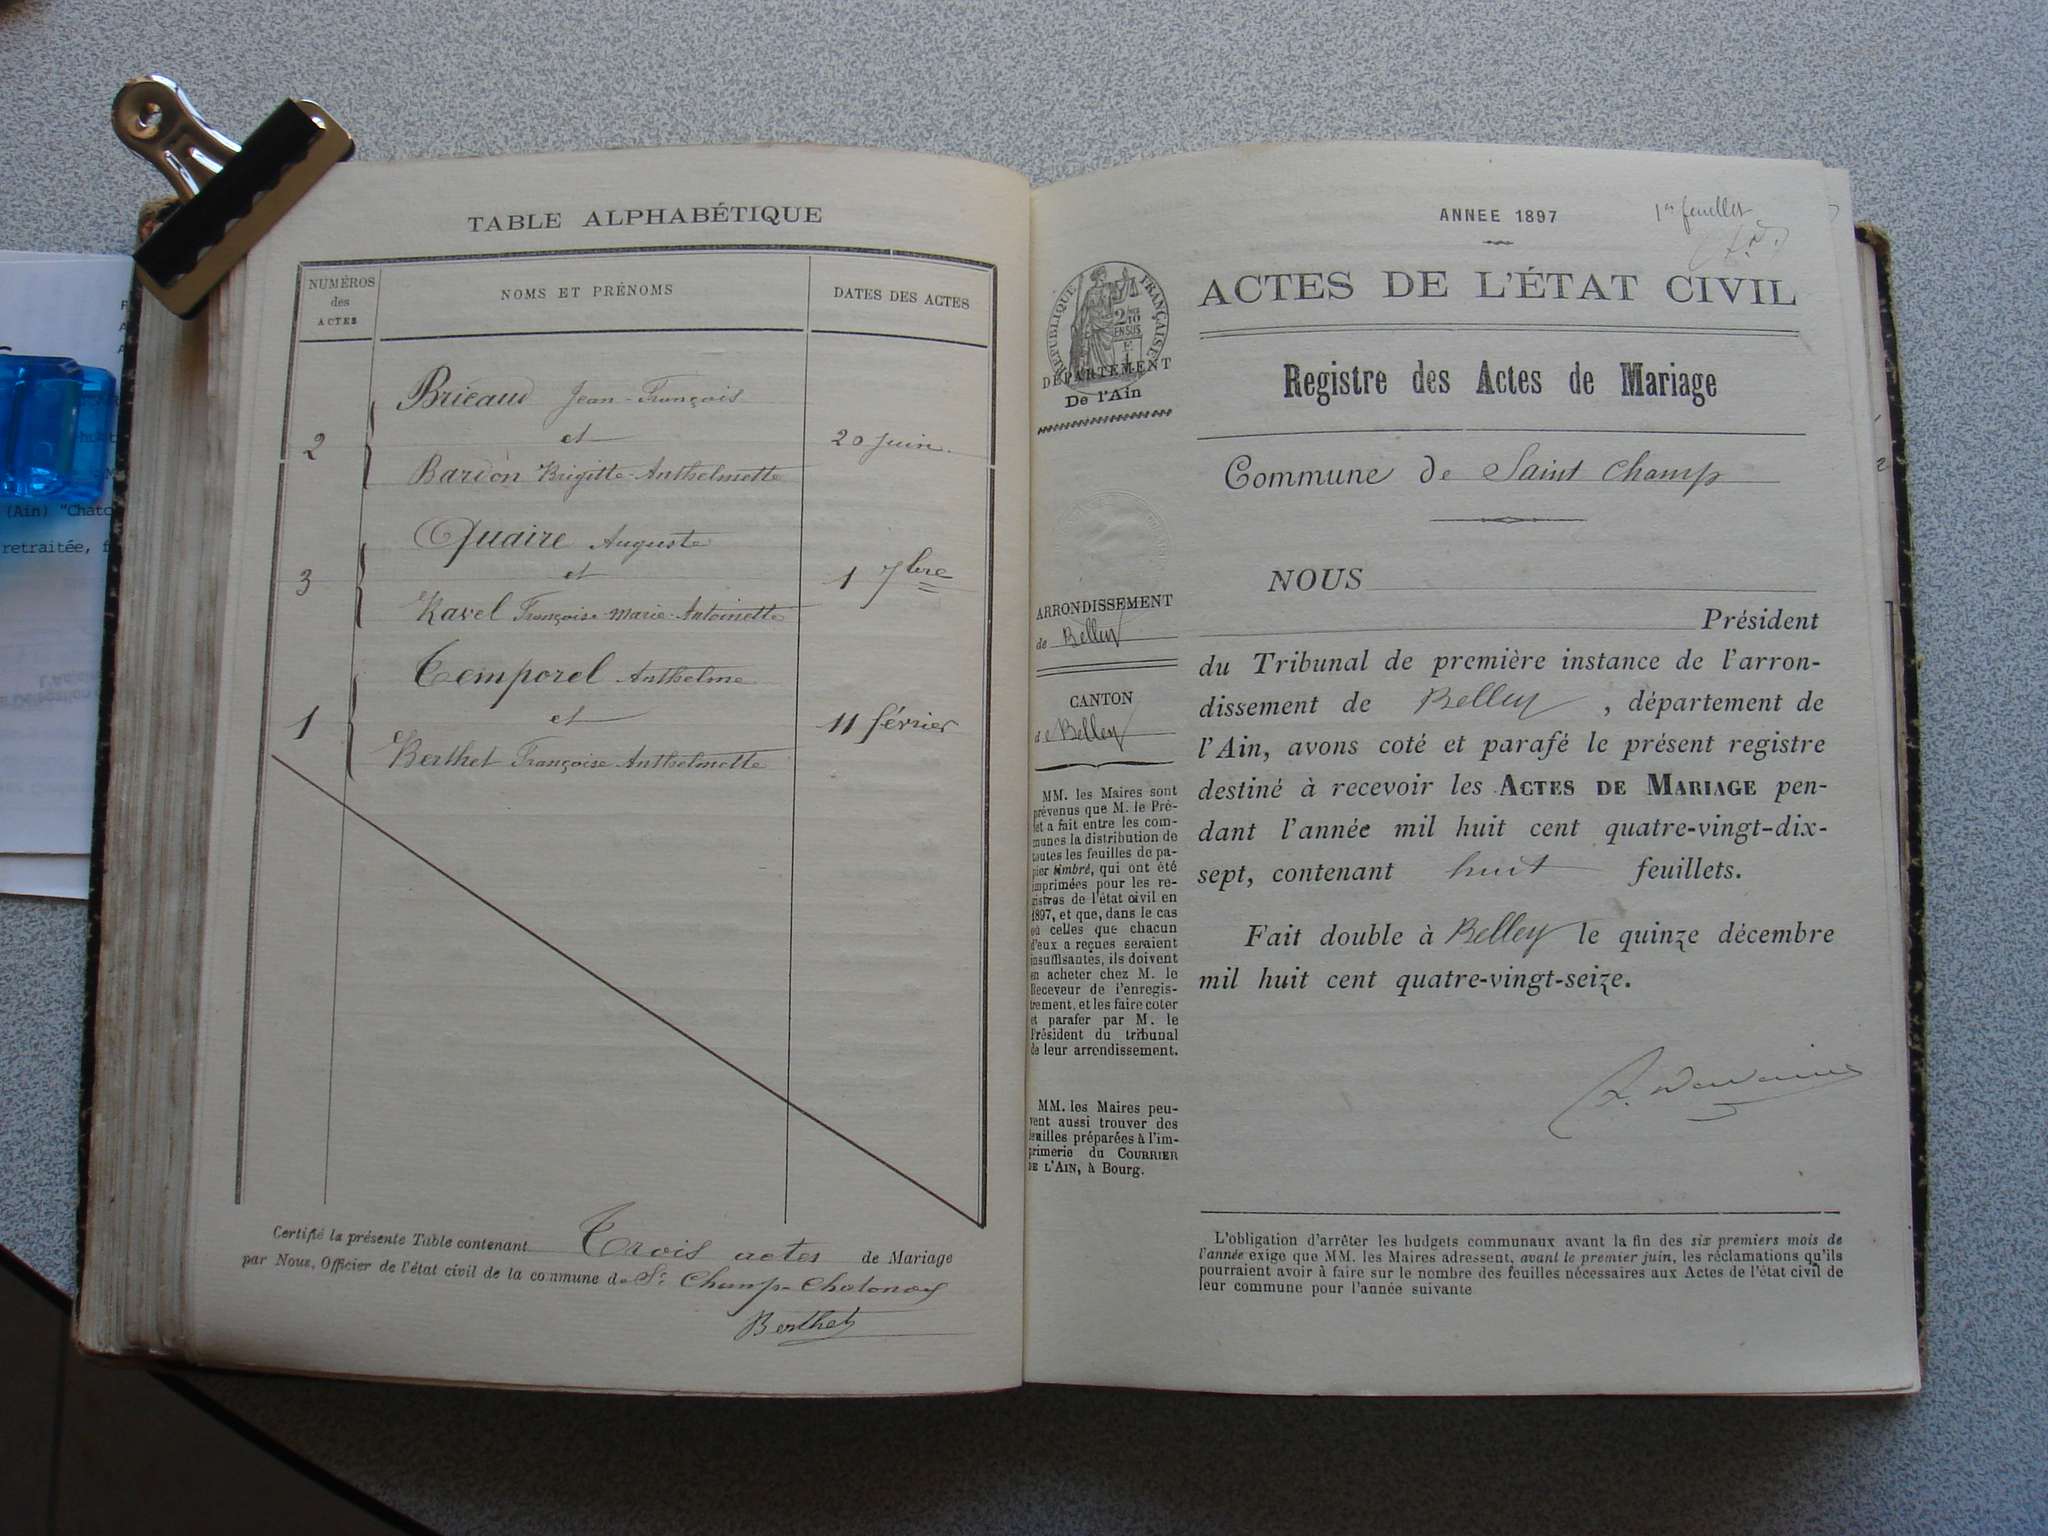 TABLE ALPHABÉTIQUE
NUMÉROS
des
ACTES
NOMS ET PRÉNOMS
DATES DES ACTES
Bricaud Jean-François
et
2
20 Juin
Bardon Brigitte-Anthelmette
Quaire Auguste
et
3
1 7bre
Ravel Françoise-Marie-Antoinette
Temporel Anthelme
et
1
11 février
Berthet Françoise Anthelmette
Certifié la présente Table contenant Trois actes de Mariage
par Nous, Officier de l'état civil de la commune de St Champ-Chatonod
Berthet
ANNEE 1897
1er feuillet
RÉPUBLIQUE FRANÇAISE
DÉPARTEMENT
De l'Ain
ARRONDISSEMENT
de Belley
CANTON
de Belley
MM. les Maires sont
prévenus que M. le Pré-
fet a fait entre les com-
munes la distribution de
toutes les feuilles de pa-
pier timbré, qui ont été
imprimées pour les re-
gistres de l'état civil en
1897, et que, dans le cas
où celles que chacun
d'eux a reçues seraient
insuffisantes, ils doivent
en acheter chez M. le
Receveur de l'enregis-
trement, et les faire coter
et parafer par M. le
Président du tribunal
de leur arrondissement.
MM. les Maires peu-
vent aussi trouver des
feuilles préparées à l'im-
primerie du COURRIER
DE L'AIN, à Bourg.
ACTES DE L'ÉTAT CIVIL
Registre des Actes de Mariage
Commune de Saint Champ
NOUS
Président
du Tribunal de première instance de l'arron-
dissement de Belley, département de
l'Ain, avons coté et parafé le présent registre
destiné à recevoir les ACTES DE MARIAGE pen-
dant l'année mil huit cent quatre-vingt-dix-
sept, contenant huit feuillets.
Fait double à Belley le quinze décembre
mil huit cent quatre-vingt-seize.
L'obligation d'arrêter les budgets communaux avant la fin des six premiers mois de
l'année exige que MM. les Maires adressent, avant le premier juin, les réclamations qu'ils
pourraient avoir à faire sur le nombre des feuilles nécessaires aux Actes de l'état civil de
leur commune pour l'année suivante
(Ain) "Chato
retraitée, f